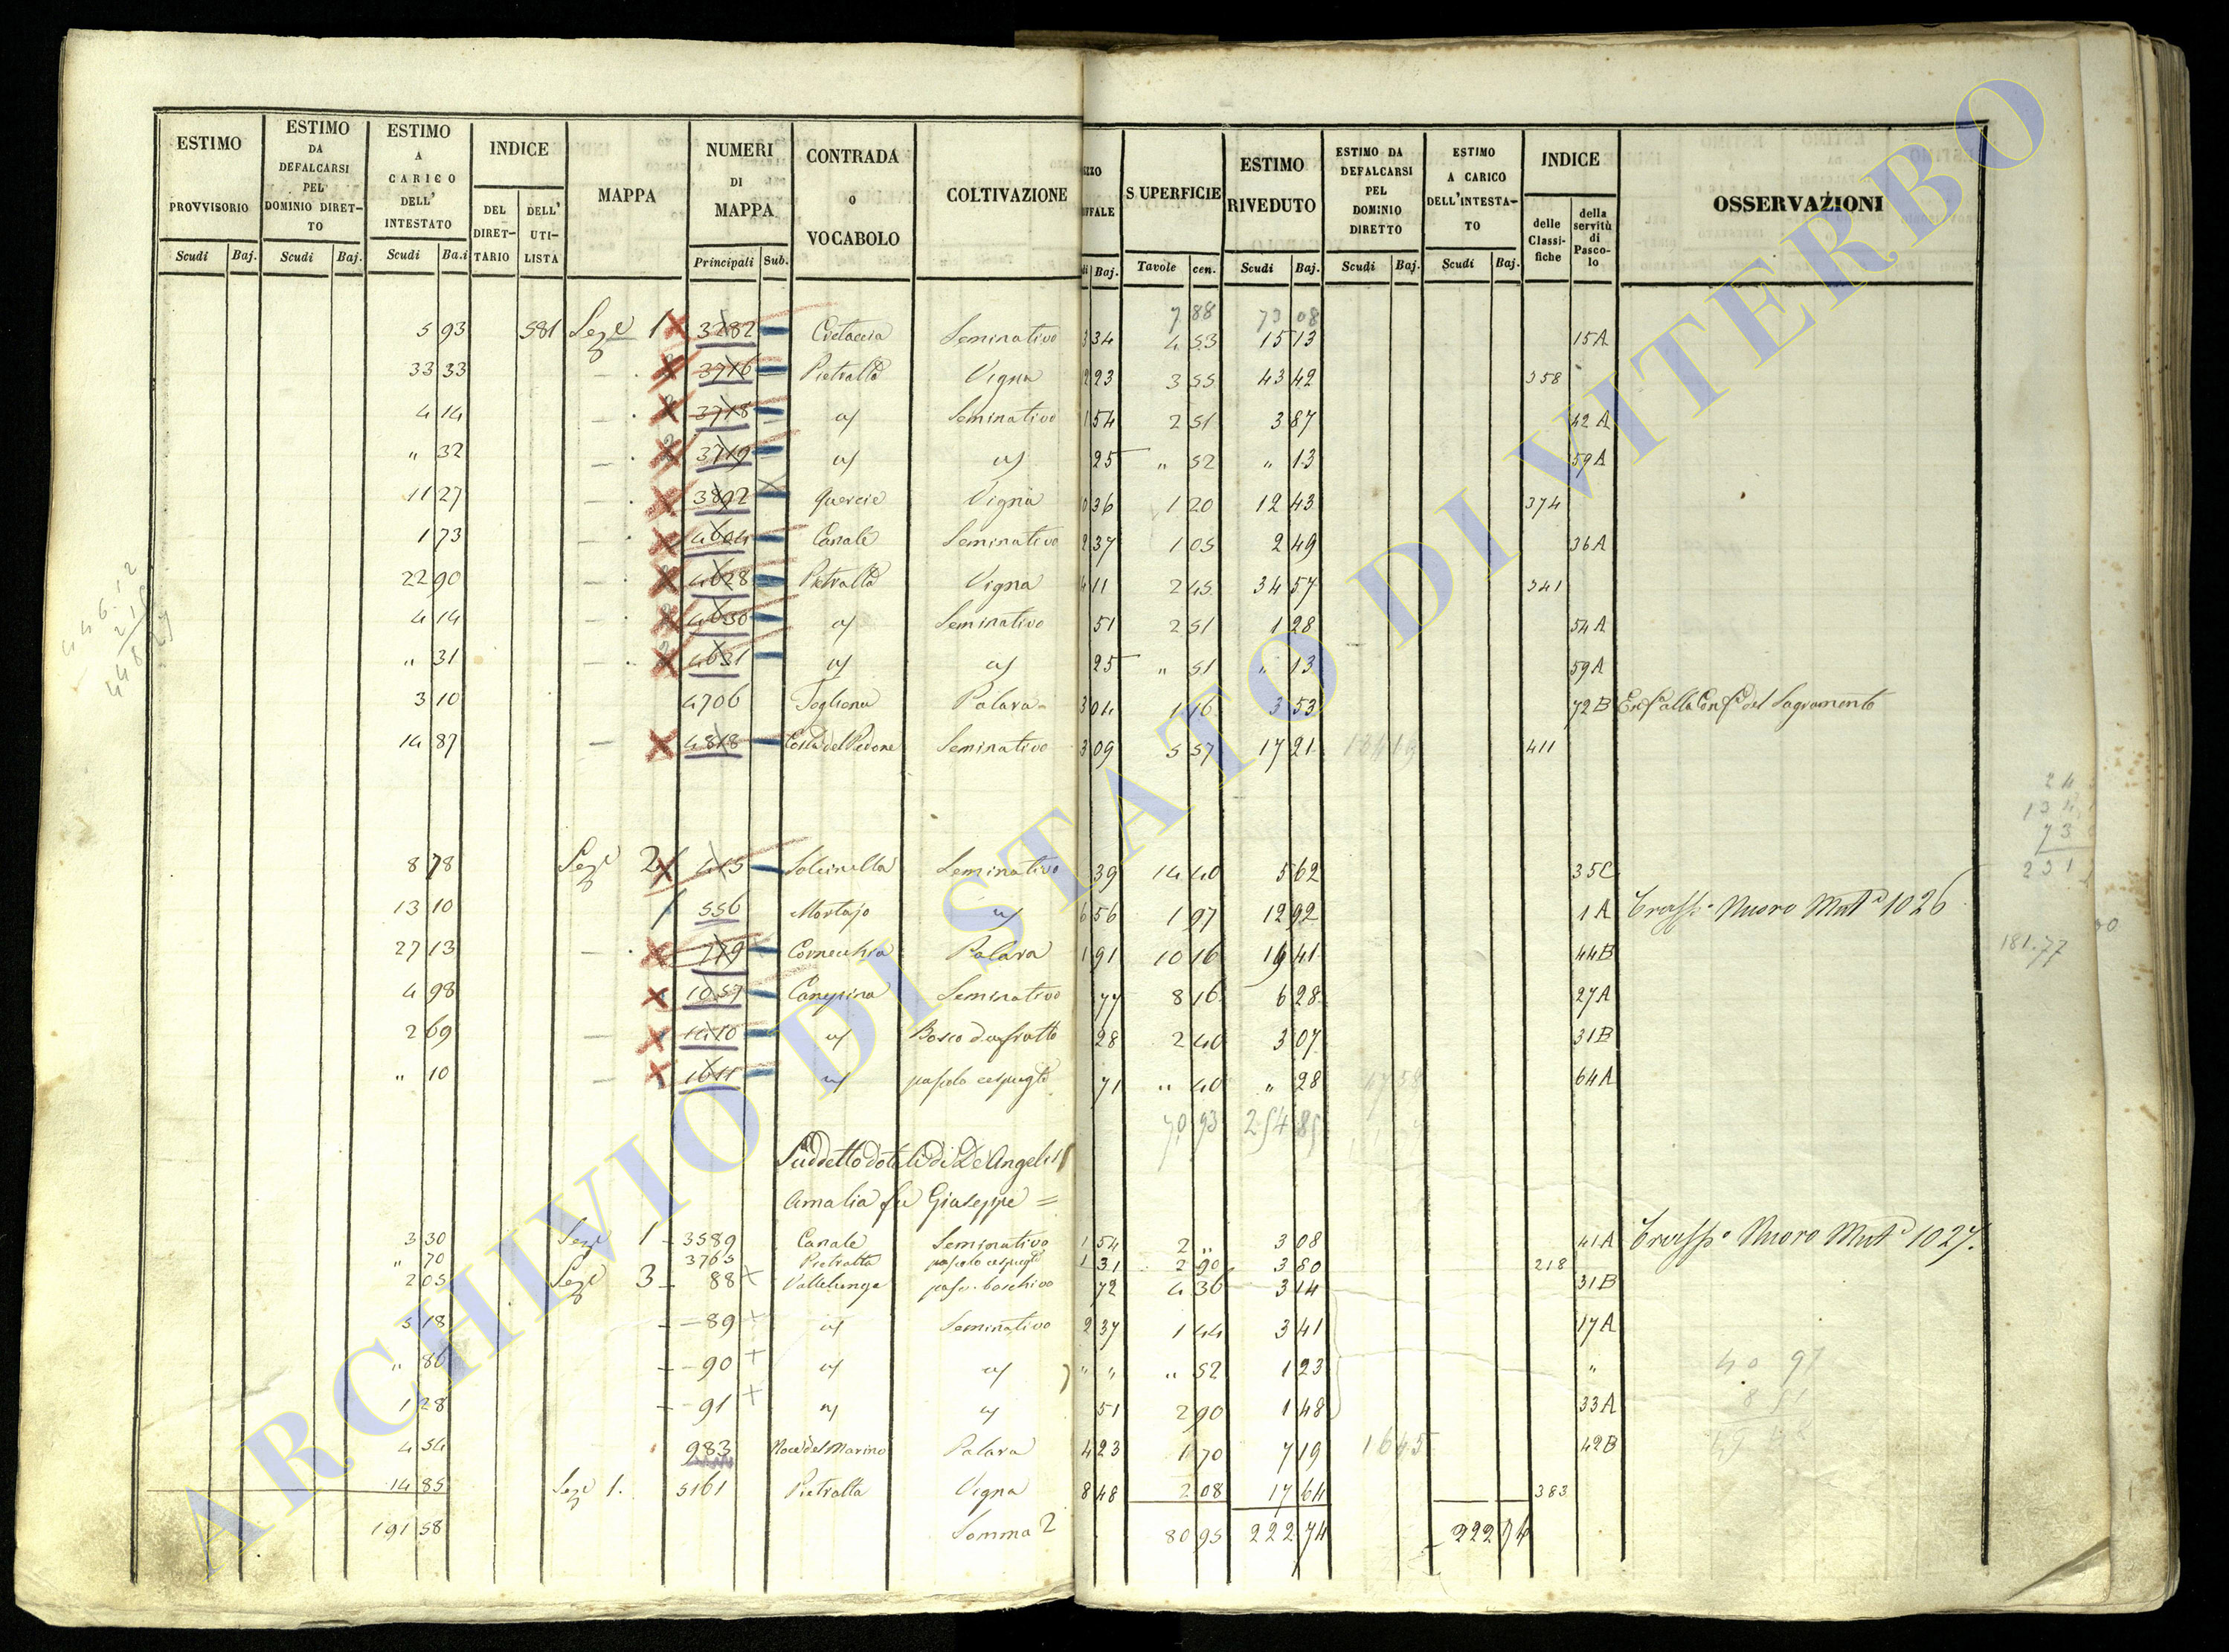 ESTIMO PROVVISORIO Scudi Baj.
ESTIMO DA DEFALCARSI PEL DOMINIO DIRET-TO Scudi Baj.
ESTIMO A CARICO DELL' INTESTATO Scudi Ba.i
INDICE DEL DIRET-TARIO DELL' UTI-LISTA
MAPPA
NUMERI DI MAPPA Principali Sub.
CONTRADA O VOCABOLO
COLTIVAZIONE
UFFALE Baj.
SUPERFICIE Tavole cen.
ESTIMO RIVEDUTO Scudi Baj.
ESTIMO DA DEFALCARSI PEL DOMINIO DIRETTO Scudi Baj.
ESTIMO A CARICO DELL'INTESTA-TO Scudi Baj.
INDICE delle Classi-fiche della servitù di Pasco-lo
OSSERVAZIONI
7 88 73 08
5 93 581 Sez.e 1 3282 Seminativo 3 34 4 53 15 13 15A
33 33 3716 Pietralta Vigna 23 3 55 43 42 358
4 14 3718 Seminativo 1 54 2 51 3 87 42 A
" 32 3719 25 " 52 " 13 59A
11 27 3892 Quercie Vigna 36 1 20 12 43 374
1 73 4604 Canale Seminativo 2 37 1 05 2 49 36A
22 90 4628 Pietralta Vigna 4 11 2 45 34 57 341
4 14 4630 Seminativo 51 2 51 1 28 54 A
" 31 4631 25 " 51 " 13 59A
3 10 4706 Pogliena Palara 3 04 1 16 3 53 72 B del Sagramento
14 87 4818 Costa del Pedone Seminativo 3 09 5 57 17 21 411
8 78 Sez.e 2 415 Solcinella Seminativo 39 14 40 5 62 35C
13 10 556 Mortajo 6 56 1 97 12 92 1 A Nuovo Mat.e 1026
27 13 779 Cornecchia Palara 1 91 10 16 19 41 44B
4 98 1057 Canepina Seminativo 77 8 16 6 28 27A
2 69 1410 Bosco da frutto 28 2 40 3 07 31B
" 10 1611 pascolo cespugl.o 71 " 40 " 28 64A
70 93 254 85
Suddetto dotali di De Angelis
Amalia fu Giuseppe =
3 30 Sez.e 1 3589 Canale Seminativo 1 54 2 " 3 08 41A Nuovo Mat.e 1027.
" 70 3765 Pietralta pascolo cespugl.o 1 31 2 90 3 80 218
2 05 Sez.e 3 88 Vallelunga pasc. boschivo 72 4 36 3 14 31B
5 18 89 Seminativo 2 37 1 44 3 41 17A
" 86 90 " " " 52 1 23 "
1 28 91 51 2 90 1 48 33A
4 54 983 Noce del Marino Palara 4 23 1 70 7 19 16 45 42B
14 85 Sez.e 1. 5161 Pietralta Vigna 8 48 2 08 17 64 383
191 58 Somma 80 95 222 74 222 74
181.77
ARCHIVIO DI STATO DI VITERBO